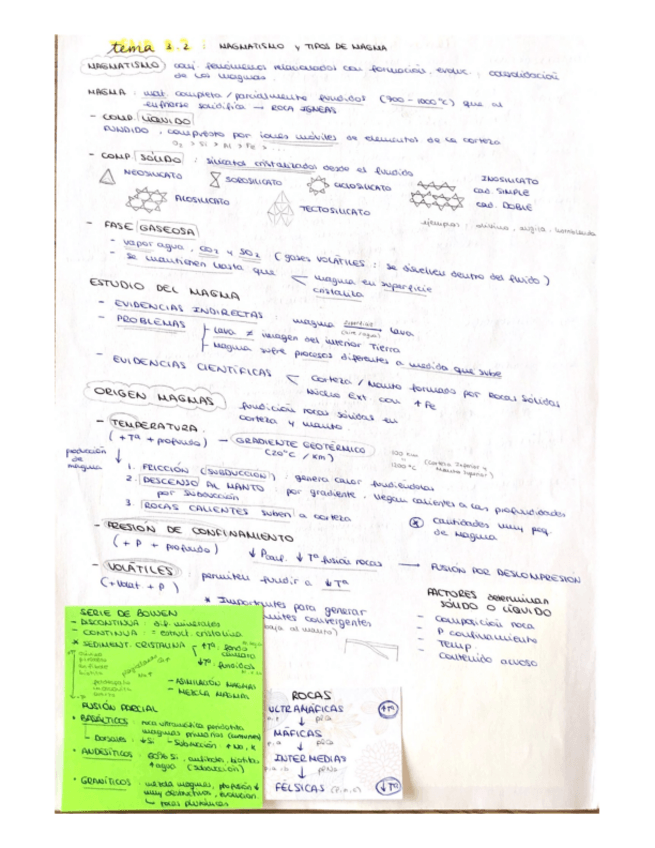 tema 3.2 : MAGMATISMO y TIPOS DE MAGMA
MAGMATISMO conj. fenómenos relacionados con formación, evoluc. consolidación
de los magmas.
MAGMA : mat. completa / parcialmente fundidos (700 - 1000°C) que al
enfriarse solidifica → ROCA IGNEAS
- COMP. LÍQUIDO
FUNDIDO, compuesto por iones móviles de elementos de la corteza
O2 > Si > Al > Fe > ...
- COMP SÓLIDO : silicatos cristalizados desde el fundido
NEOSILICATO SOROSILICATO CICLOSILICATO INOSILICATO
cad. SIMPLE
cad. DOBLE
FILOSILICATO TECTOSILICATO
ejemplos : olivino, augita, hornblenda
- FASE GASEOSA
- vapor agua, CO2 y SO2 (gases VOLÁTILES : se disuelven dentro del fluido)
- se mantienen hasta que magma en superficie
cristaliza
ESTUDIO DEL MAGMA
- EVIDENCIAS INDIRECTAS : magma → lava
- PROBLEMAS - Lava ≠ imagen del interior Tierra
- Magma sufre procesos diferentes a medida que sube
- EVIDENCIAS CIENTÍFICAS corteza / Manto formado por Rocas Sólidas
Núcleo Ext con ↑ Fe
ORIGEN MAGMAS fundición rocas sólidas en
corteza y manto
- TEMPERATURA
(+ Tª + profundo) → GRADIENTE GEOTÉRMICO
(20°C / km)
1200°C (Corteza Inferior y
Manto Superior)
producción
de
magma
1. FRICCIÓN (SUBDUCCIÓN) : genera calor fundiéndolas
2. DESCENSO AL MANTO : por gradiente, llegan calientes a las profundidades
por subducción
3. ROCAS CALIENTES suben a corteza
* cantidades muy peq.
de magma
- PRESIÓN DE CONFINAMIENTO
(+ P + profundo) ↓ Pconf. ↓ Tª fusión rocas → FUSIÓN POR DESCOMPRESIÓN
- VOLÁTILES : permiten fundir a ↓Tª
(+ Volat + P)
* Importantes para generar
límites convergentes
(baja al manto)
FACTORES determinan
SÓLIDO O LÍQUIDO
- Composición roca
- P confinamiento
- Temp.
- Contenido acuoso
SERIE DE BOWEN
- DISCONTINUA : dif. minerales
- CONTINUA : = estruct. cristalina
* SEDIMENT. CRISTALINA ↑Tª : fondo
cámara
↓Tª : fundidos
olivino
piroxeno
anfíbol
biotita
plagioclasas
- ASIMILACIÓN MAGMAS
- MEZCLA MAGMAS
FUSIÓN PARCIAL
• BASÁLTICOS : roca ultramáfica peridotita
magmas primarios
Dorsales : ↓Si - Subducción : ↑ Na, K
• ANDESÍTICOS : 60% Si, anfíboles, biotita,
↑agua (subducción)
• GRANÍTICOS : mezcla magmas, profusión ↓
muy destructivos, evolucion.
rocas plutónicas
ROCAS
ULTRAMÁFICAS ↑Tª
MÁFICAS
INTERMEDIAS
FÉLSICAS ↓Tª